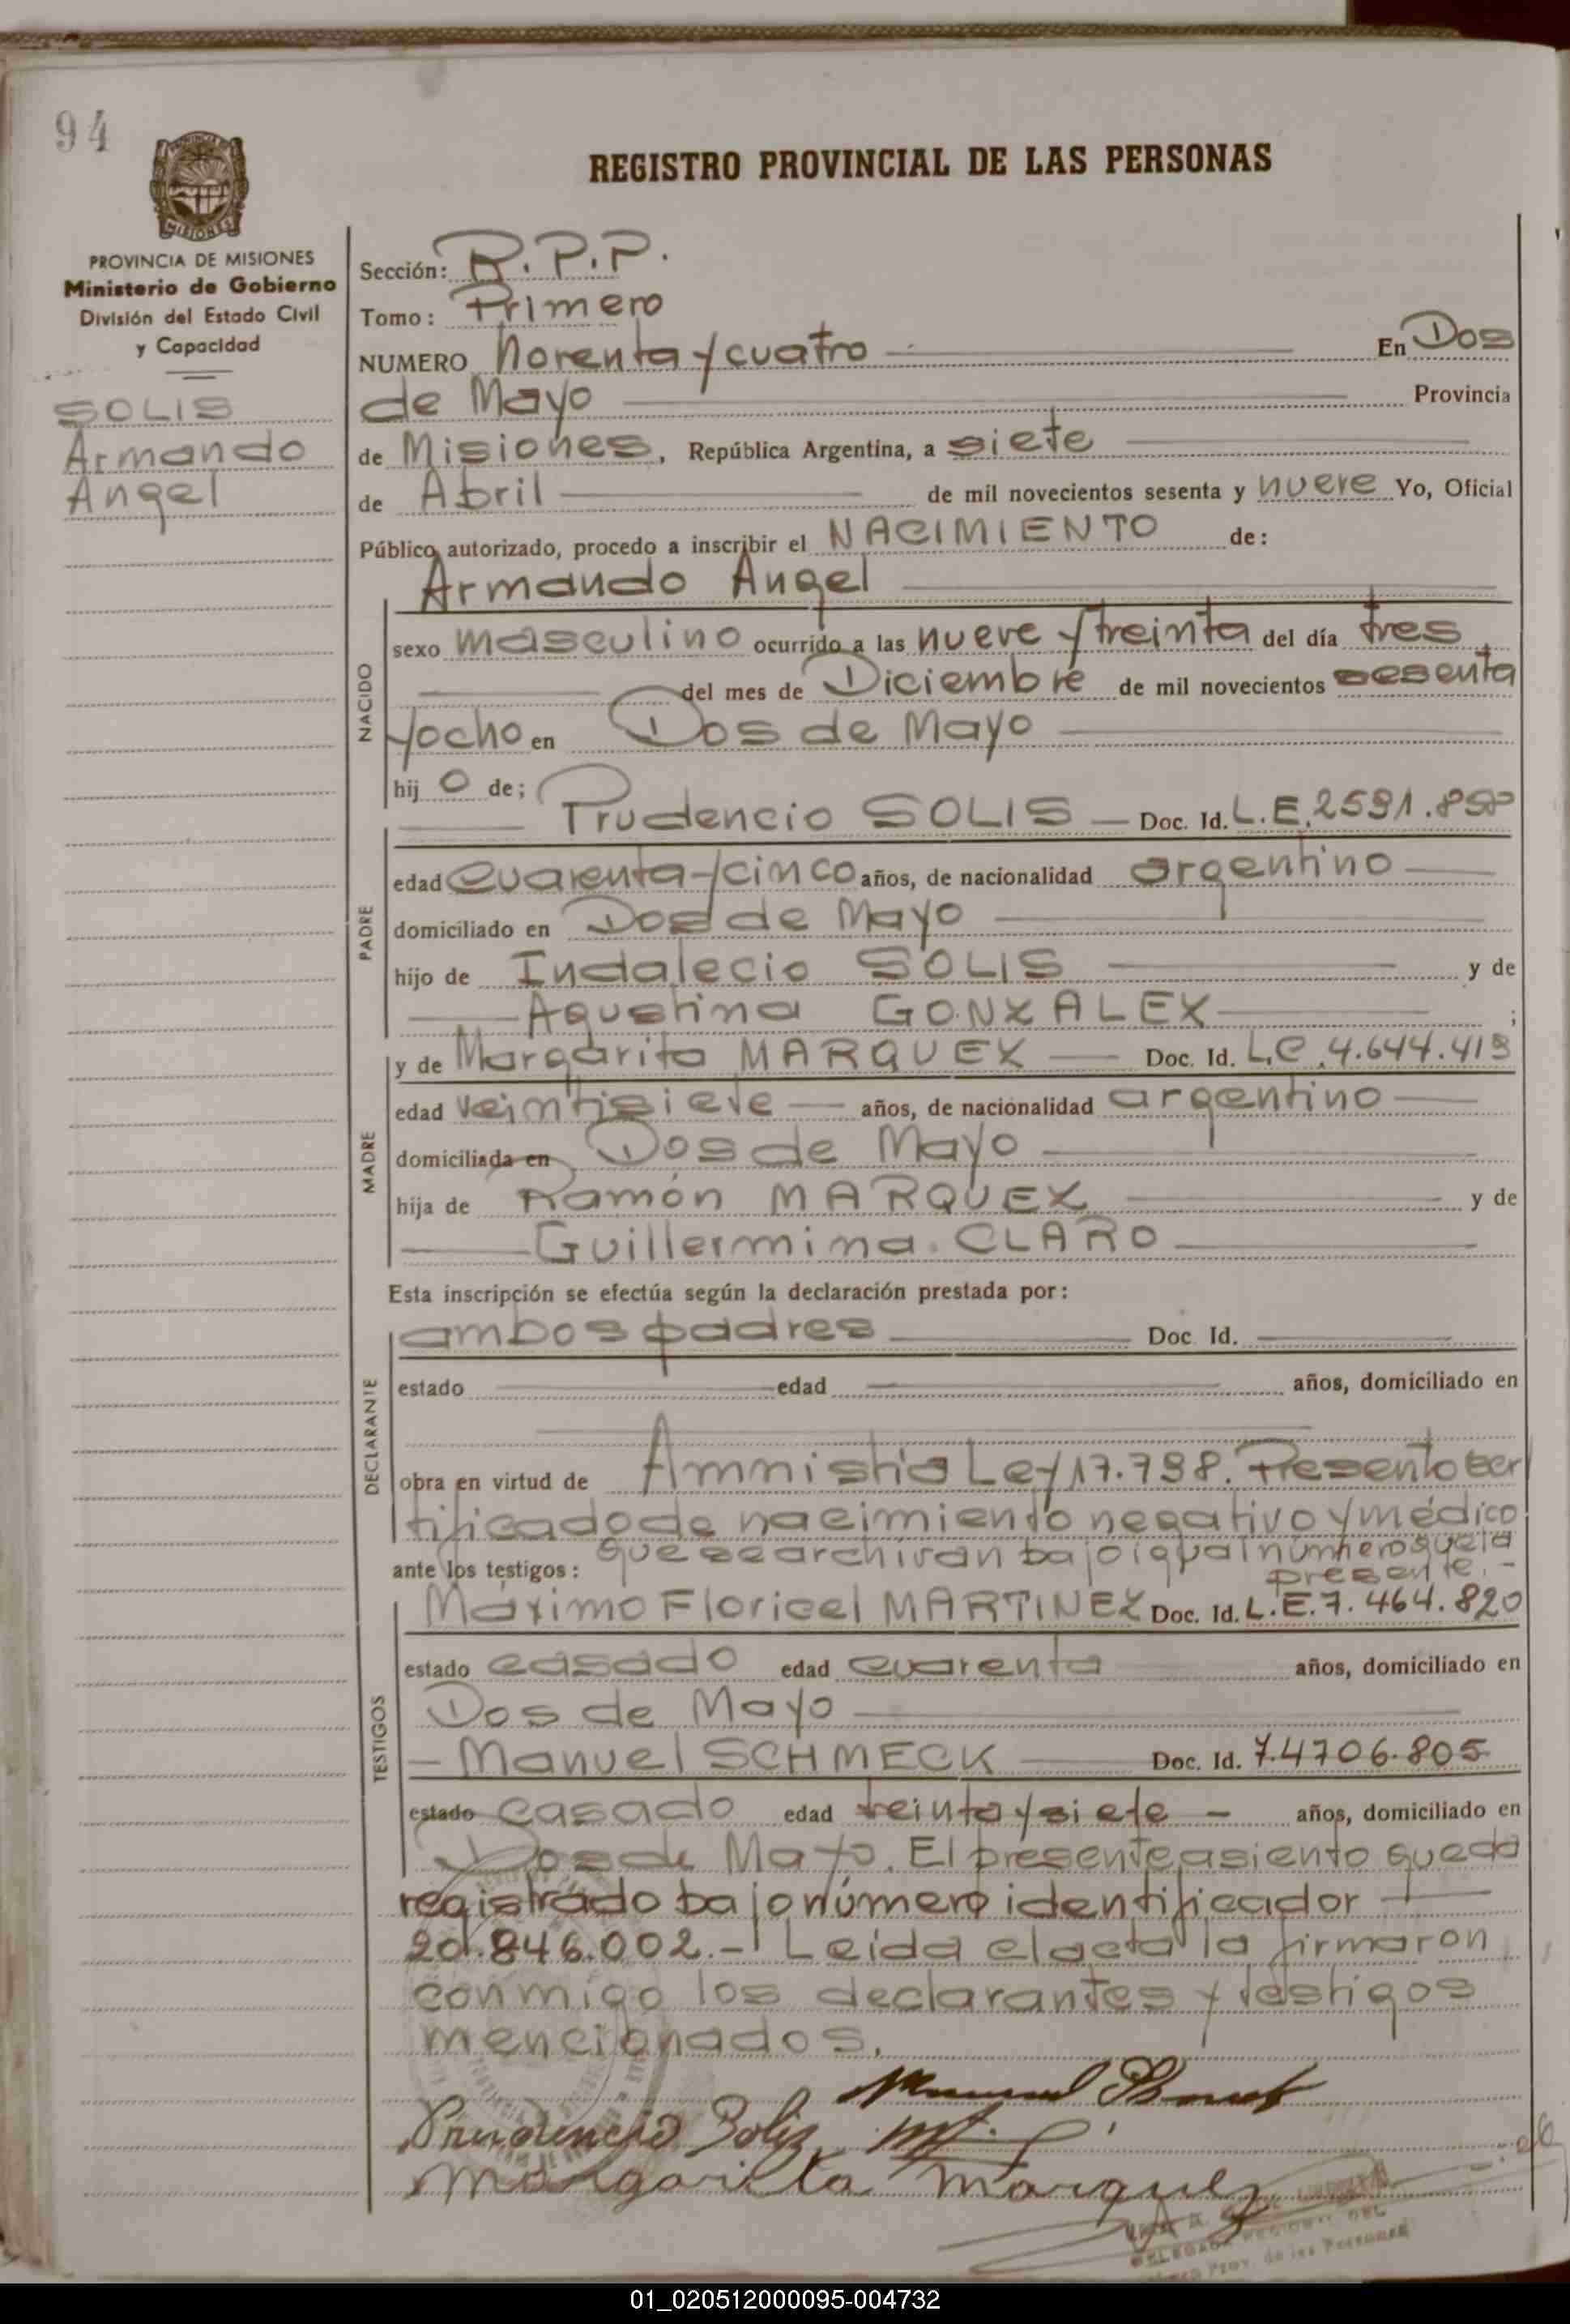 94
REGISTRO PROVINCIAL DE LAS PERSONAS
MISIONES
PROVINCIA DE MISIONES
Ministerio de Gobierno
División del Estado Civil
y Capacidad
SOLIS
Armando
Angel
Sección: R.P.P.
Tomo: Primero
NUMERO Noventa y cuatro En Dos
de Mayo Provincia
de Misiones, República Argentina, a siete
de Abril de mil novecientos sesenta y nueve Yo, Oficial
Público autorizado, procedo a inscribir el NACIMIENTO de:
Armando Angel
NACIDO
sexo masculino ocurrido a las nueve y treinta del día tres
del mes de Diciembre de mil novecientos sesenta
y ocho en Dos de Mayo
hij o de;
Prudencio SOLIS Doc. Id. L.E. 2591.858
PADRE
edad cuarenta y cinco años, de nacionalidad argentino
domiciliado en Dos de Mayo
hijo de Indalecio SOLIS y de
Agustina GONZALEZ ;
y de Margarita MARQUEZ Doc. Id. L.C. 4.644.419
MADRE
edad veintisiete años, de nacionalidad argentino
domiciliada en Dos de Mayo
hija de Ramón MARQUEZ y de
Guillermina CLARO
Esta inscripción se efectúa según la declaración prestada por:
DECLARANTE
ambos padres Doc. Id.
estado edad años, domiciliado en
obra en virtud de Amnistia Ley 17.798. Presento cer
tificado de nacimiento negativo y médico
que se archivan bajo igual número que la
presente.-
ante los testigos:
TESTIGOS
Maximo Floricel MARTINEZ Doc. Id. L.E. 7.464.820
estado casado edad cuarenta años, domiciliado en
Dos de Mayo
- Manuel SCHMECK Doc. Id. 7.4706.805
estado casado edad treinta y siete - años, domiciliado en
Dos de Mayo. El presente asiento queda
registrado bajo número identificador
20.846.002.- Leida el acta la firmaron
conmigo los declarantes y testigos
mencionados.
Prudencio Soliz
Margarita Marquez
DELEGADA REGIONAL DEL
Prov. de las Personas
01_020512000095-004732